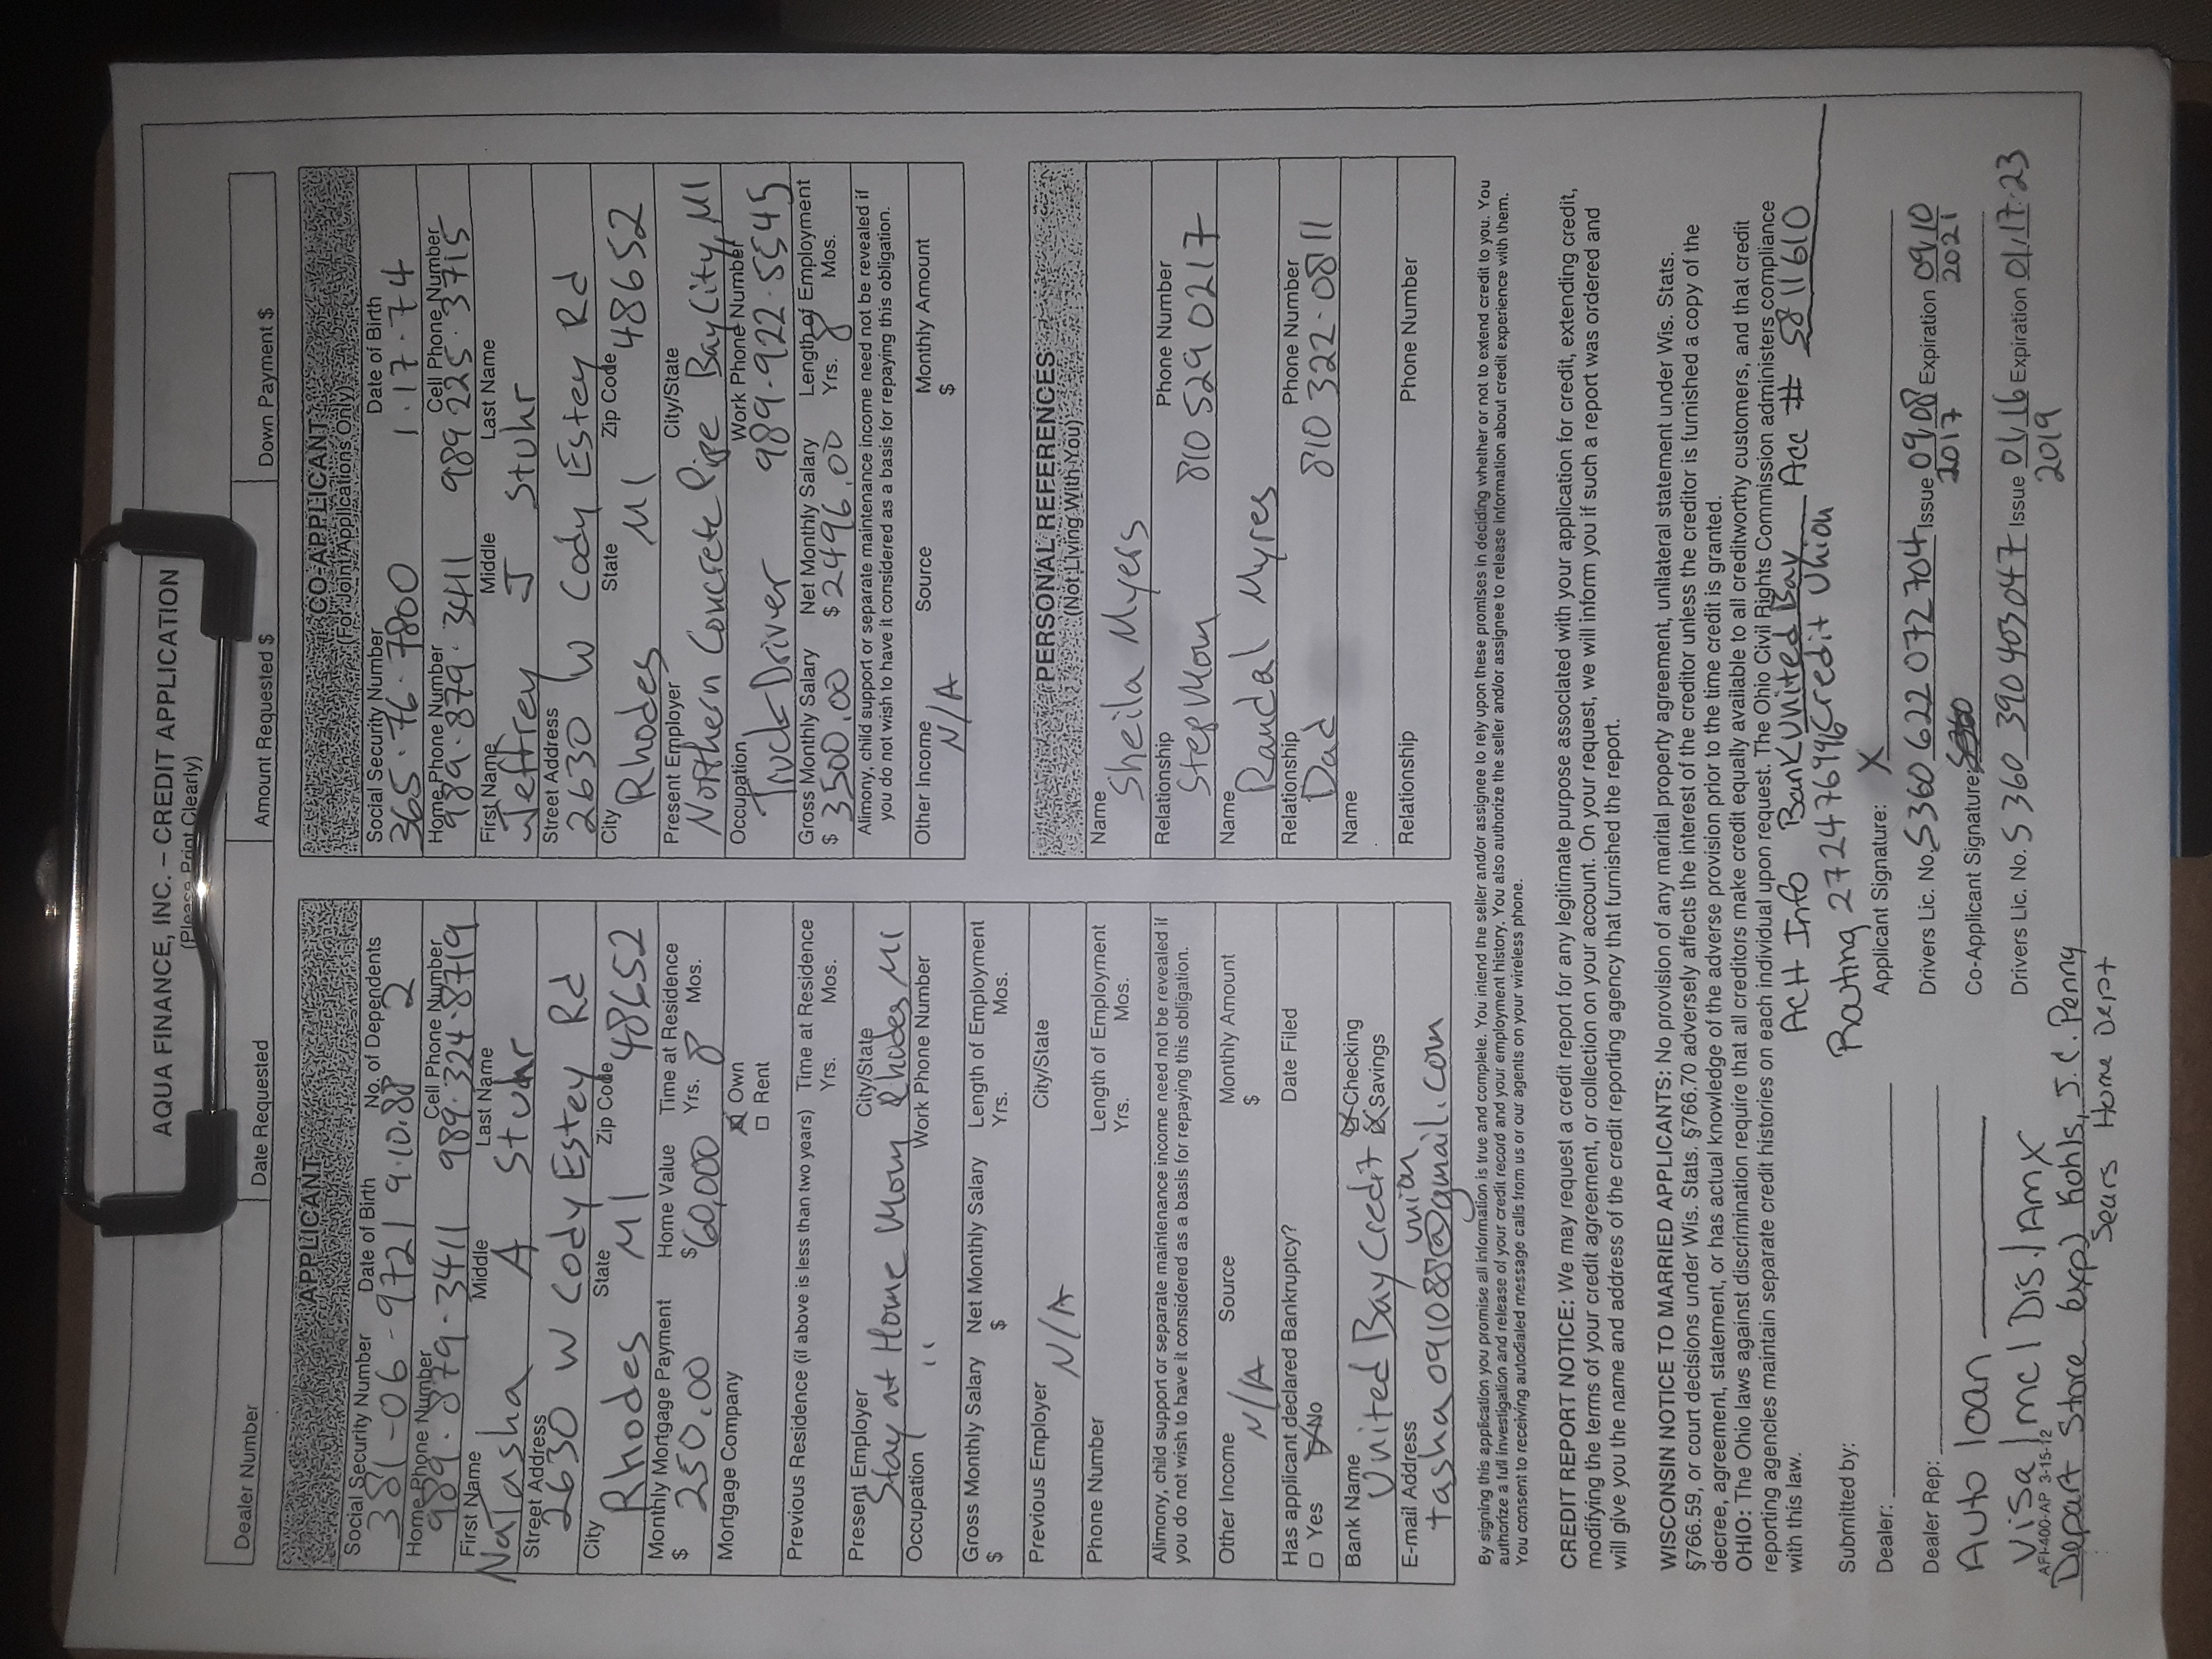 AQUA FINANCE, INC. – CREDIT APPLICATION
(Please Print Clearly)
Dealer Number Date Requested Amount Requested $ Down Payment $
APPLICANT
Social Security Number Date of Birth No. of Dependents
[SSN redacted] 9.10.88 2
Home Phone Number Cell Phone Number
989.879.3411 989.324.8719
First Name Middle Last Name
Natasha A Stuhr
Street Address
2630 W Cody Estey Rd
City State Zip Code
Rhodes MI 48652
Monthly Mortgage Payment Home Value Time at Residence
$ 250.00 $ 60,000 Yrs. 8 Mos.
Mortgage Company ☒ Own
☐ Rent
Previous Residence (if above is less than two years) Time at Residence
Yrs. Mos.
Present Employer City/State
Stay at Home Mom Rhodes MI
Occupation Work Phone Number
"
Gross Monthly Salary Net Monthly Salary Length of Employment
$ $ Yrs. Mos.
Previous Employer City/State
N/A
Phone Number Length of Employment
Yrs. Mos.
Alimony, child support or separate maintenance income need not be revealed if
you do not wish to have it considered as a basis for repaying this obligation.
Other Income Source Monthly Amount
N/A $
Has applicant declared Bankruptcy? Date Filed
☐ Yes ☒ No
Bank Name ☒ Checking
United Bay Credit union ☒ Savings
E-mail Address
tasha091088@gmail.com
CO-APPLICANT
(For Joint Applications Only)
Social Security Number Date of Birth
[SSN redacted] 1.17.74
Home Phone Number Cell Phone Number
989.879.3411 989 225.3715
First Name Middle Last Name
Jeffrey J Stuhr
Street Address
2630 W Cody Estey Rd
City State Zip Code
Rhodes MI 48652
Present Employer City/State
Northern Concrete Pipe Bay City, MI
Occupation Work Phone Number
Truck Driver 989-922-5545
Gross Monthly Salary Net Monthly Salary Length of Employment
$ 3500.00 $ 2496.00 Yrs. 8 Mos.
Alimony, child support or separate maintenance income need not be revealed if
you do not wish to have it considered as a basis for repaying this obligation.
Other Income Source Monthly Amount
N/A $
PERSONAL REFERENCES
(Not Living With You)
Name
Sheila Myers
Relationship Phone Number
Step Mom 810 529 0217
Name
Randal Myres
Relationship Phone Number
Dad 810 322-0811
Name
Relationship Phone Number
By signing this application you promise all information is true and complete. You intend the seller and/or assignee to rely upon these promises in deciding whether or not to extend credit to you. You
authorize a full investigation and release of your credit record and your employment history. You also authorize the seller and/or assignee to release information about credit experience with them.
You consent to receiving autodialed message calls from us or our agents on your wireless phone.
CREDIT REPORT NOTICE: We may request a credit report for any legitimate purpose associated with your application for credit, extending credit,
modifying the terms of your credit agreement, or collection on your account. On your request, we will inform you if such a report was ordered and
will give you the name and address of the credit reporting agency that furnished the report.
WISCONSIN NOTICE TO MARRIED APPLICANTS: No provision of any marital property agreement, unilateral statement under Wis. Stats.
§766.59, or court decisions under Wis. Stats. §766.70 adversely affects the interest of the creditor unless the creditor is furnished a copy of the
decree, agreement, statement, or has actual knowledge of the adverse provision prior to the time credit is granted.
OHIO: The Ohio laws against discrimination require that all creditors make credit equally available to all creditworthy customers, and that credit
reporting agencies maintain separate credit histories on each individual upon request. The Ohio Civil Rights Commission administers compliance
with this law.
ACH Info Bank United Bay Acc # [account number redacted]
Routing [routing number redacted] Credit Union
Submitted by:
Dealer:
Dealer Rep:
Applicant Signature: X
Drivers Lic. No. [license number redacted] Issue 09.08 2017 Expiration 09.10 2021
Co-Applicant Signature:
Drivers Lic. No. [license number redacted] Issue 01/16 2019 Expiration 01.17.23
Auto loan
Visa / mc / Dis. / AmX
AFI-400-AP 3-15-12
Depart Store exp) Kohls, J.C. Penny
Sears Home Dept